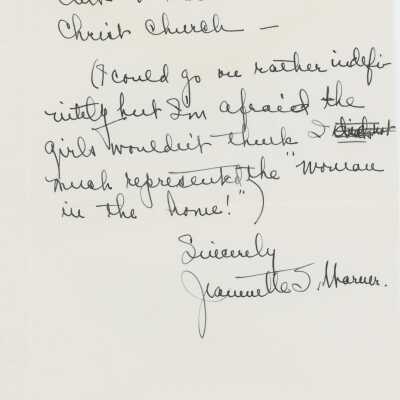 Christ Church —
(I could go on rather indefi-
nitely but I'm afraid the
girls wouldn't think I didn't
much represent the "woman
in the home!")
Sincerely
Jeannette S. Marver.